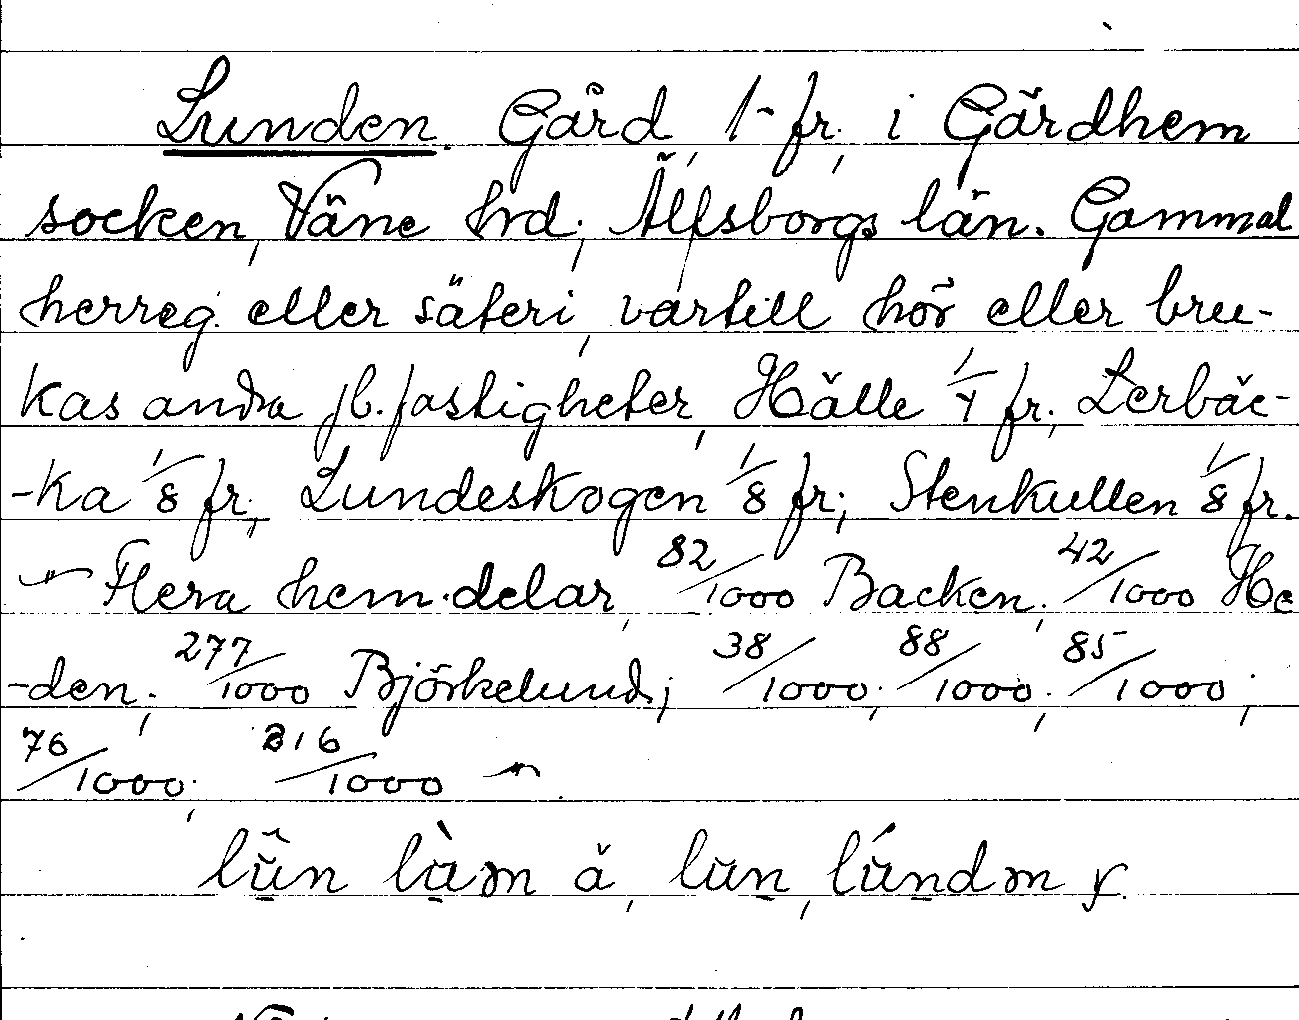 Lunden. Gård, 1 fr, i Gärdhem
socken, Väne hrd; Älfsborgs län. Gammal
herreg. eller säteri, vartill hör eller bru-
kas andra jb. fastigheter, Hälle 1/4 fr; Lerbäc-
-ka 1/8 fr; Lundeskogen 1/8 fr; Stenkullen 1/8 fr.
~ Flera hem.delar, 82/1000 Backen; 42/1000 He
-den; 277/1000 Björkelund; 38/1000; 88/1000; 85/1000;
76/1000; 316/1000 ~.